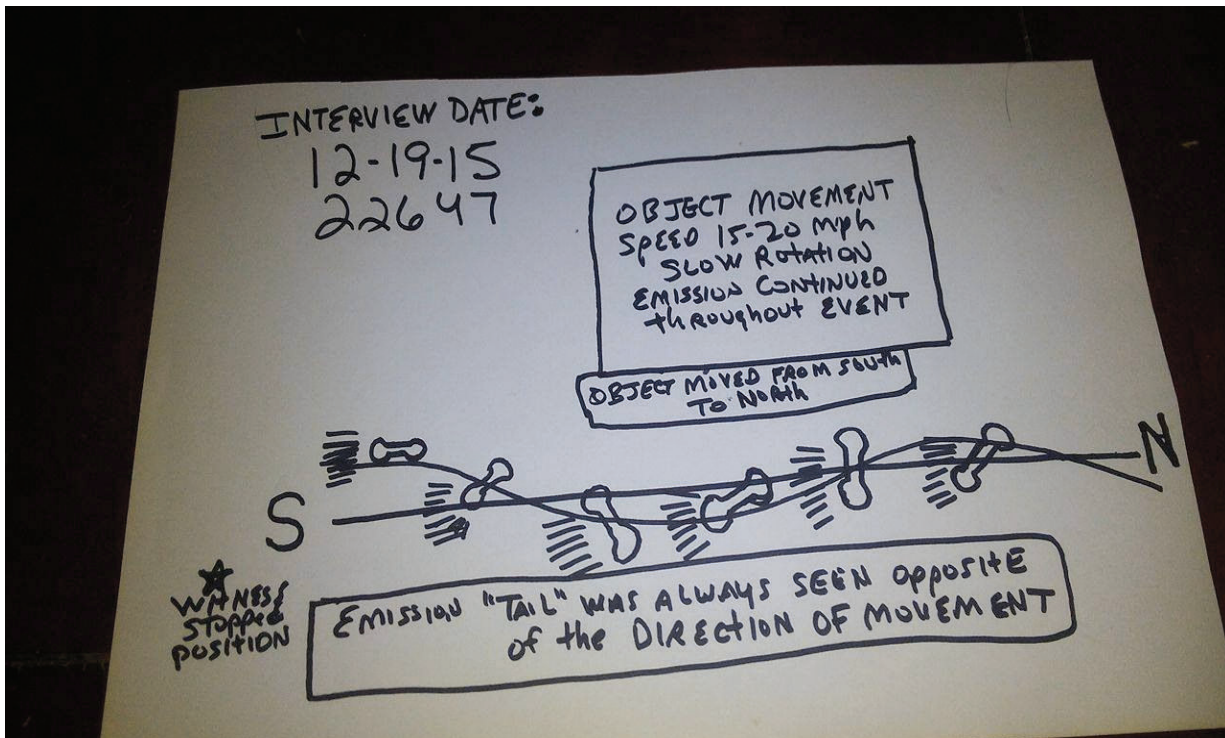 INTERVIEW DATE:
12-19-15
22647
OBJECT MOVEMENT
SPEED 15-20 mph
SLOW ROTATION
EMISSION CONTINUED
thROUGHOUT EVENT
OBJECT MOVED FROM SOUTH
TO NORTH
N
S
WITNESS
STOPPED
POSITION
EMISSION "TAIL" WAS ALWAYS SEEN OPPOSITE
OF the DIRECTION OF MOVEMENT